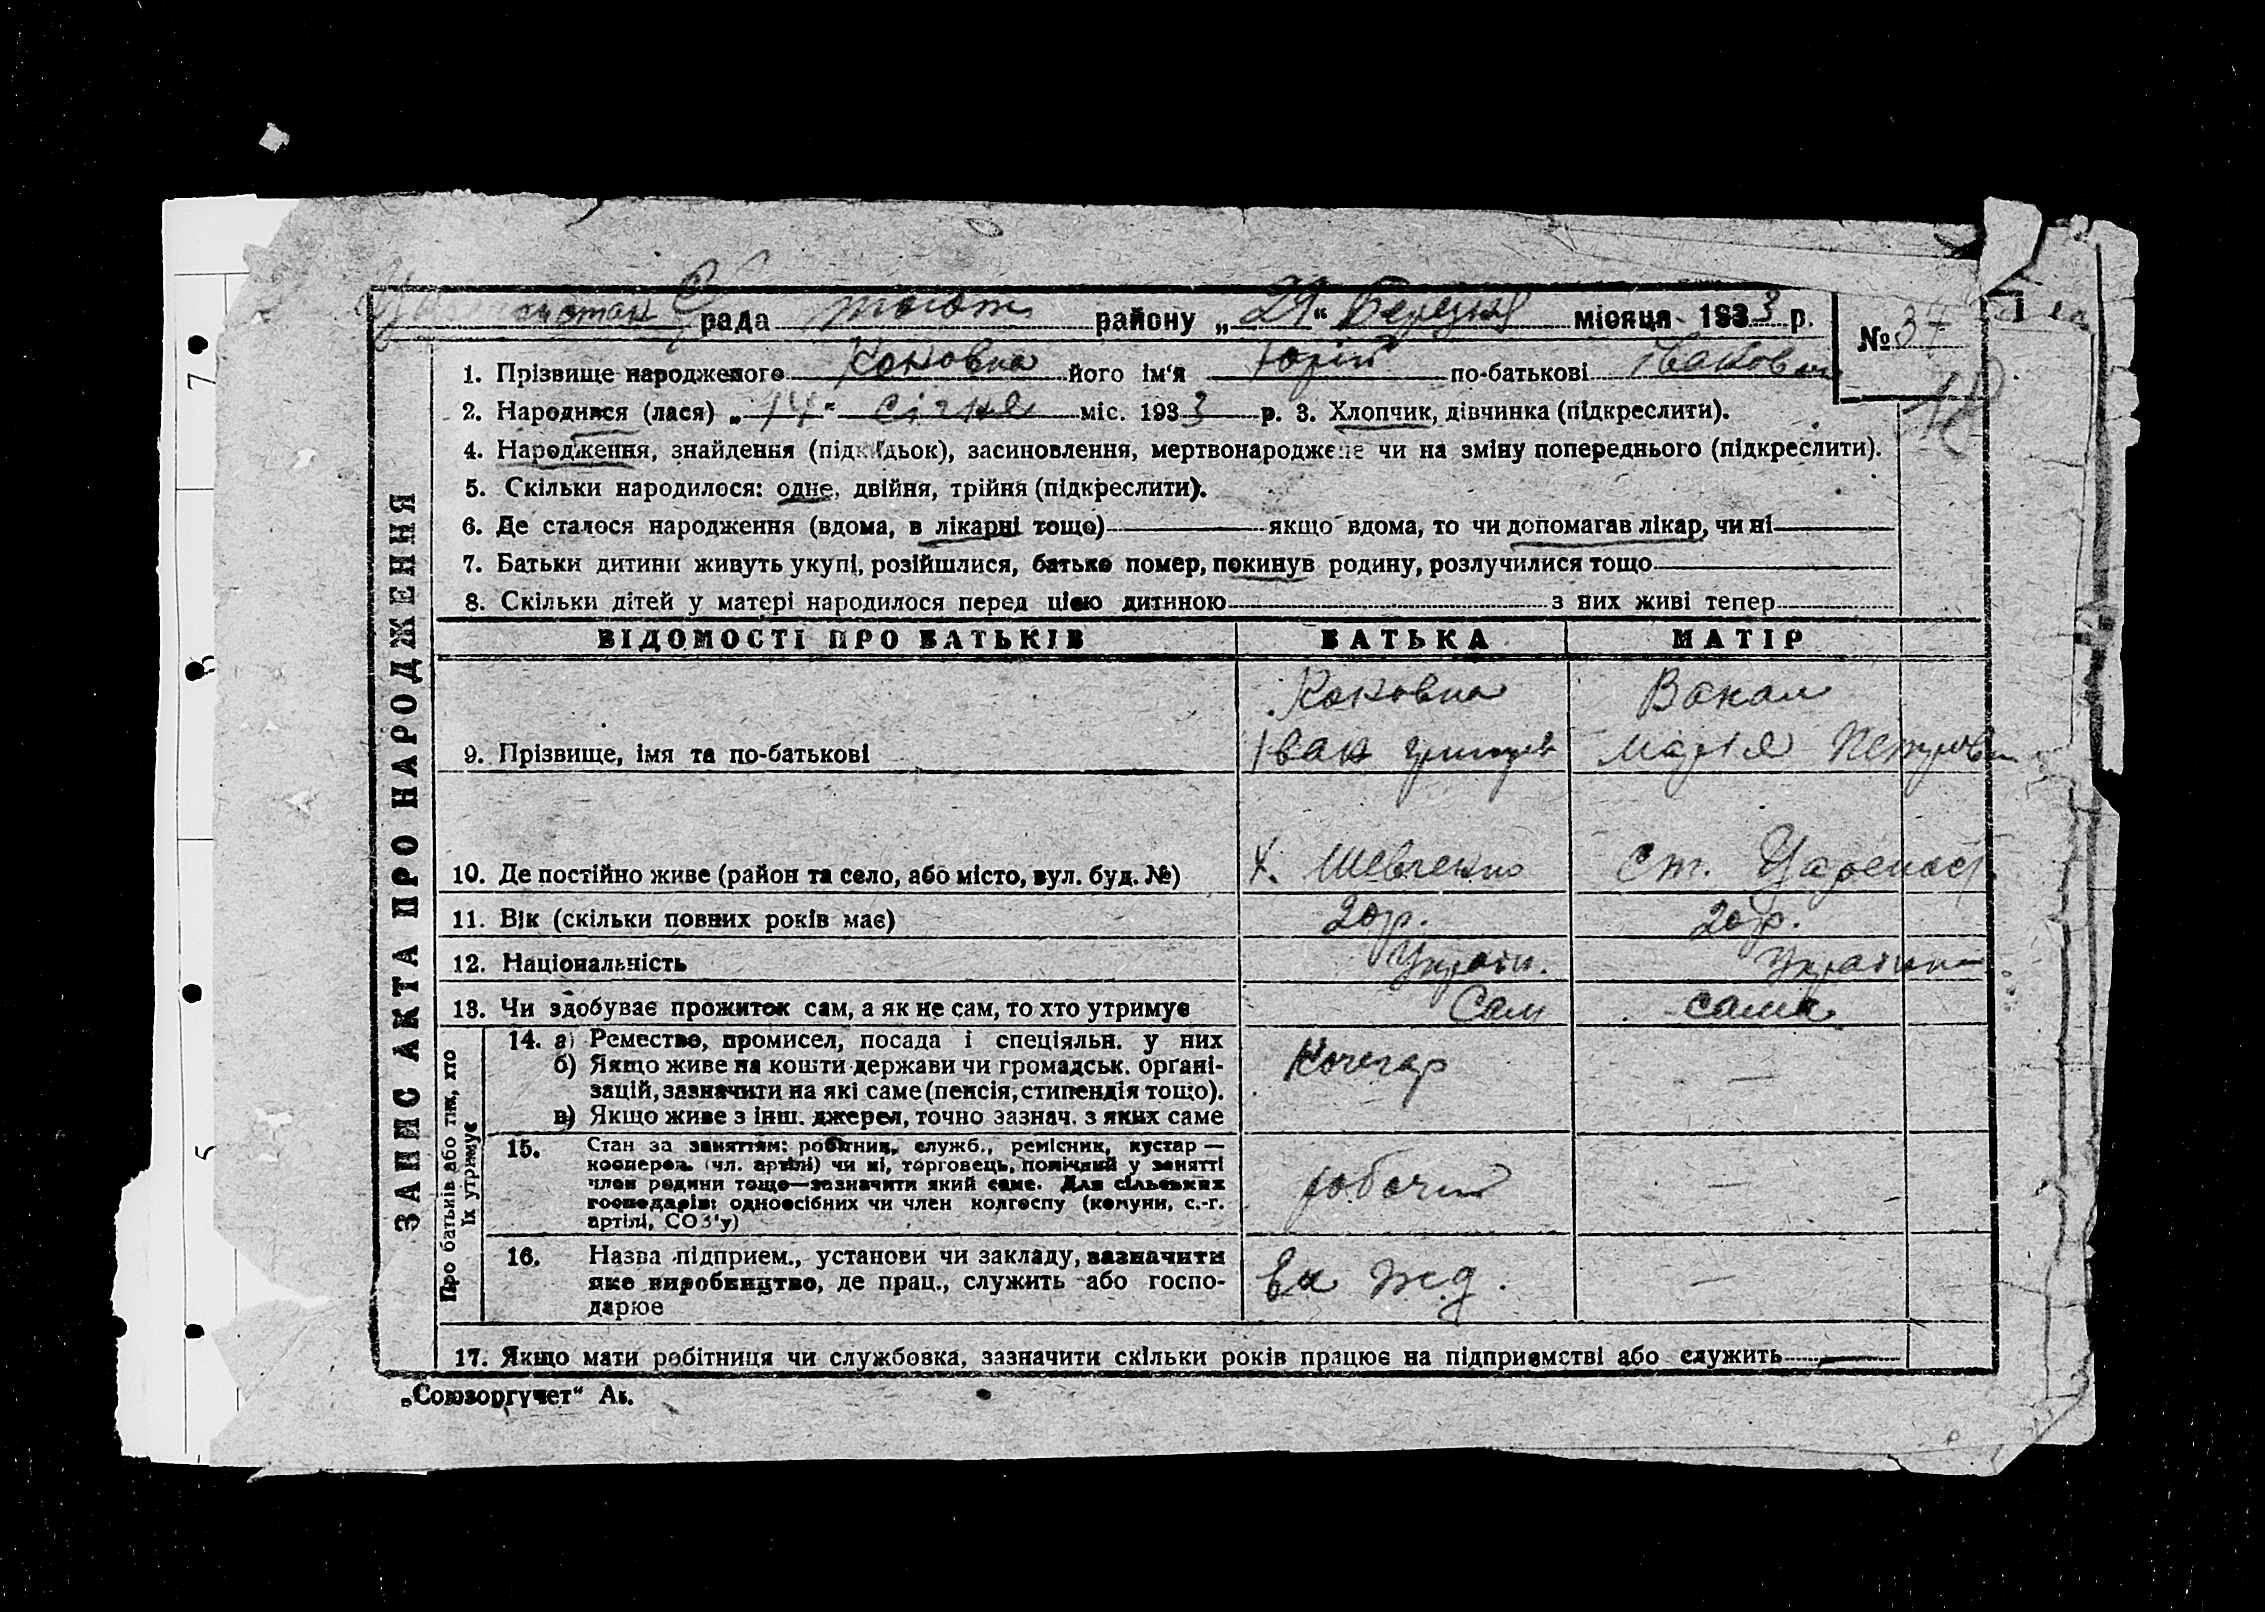 рада району „29“ Березня місяця 1933 р. №37
1. Прізвище народженого Коновка його ім'я Юрій по-батькові Іванович
2. Народився (лася) „14“ січня міс. 1933 р. 3. Хлопчик, дівчинка (підкреслити).
4. Народження, знайдення (підкидьок), засиновлення, мертвонароджене чи на зміну попереднього (підкреслити).
5. Скільки народилося: одне, двійня, трійня (підкреслити).
6. Де сталося народження (вдома, в лікарні тощо) якщо вдома, то чи допомагав лікар, чи ні
7. Батьки дитини живуть укупі, розійшлися, батько помер, покинув родину, розлучилися тощо
8. Скільки дітей у матері народилося перед цією дитиною з них живі тепер
ЗАПИС АКТА ПРО НАРОДЖЕННЯ
ВІДОМОСТІ ПРО БАТЬКІВ БАТЬКА МАТІР
Коновка
9. Прізвище, імя та по-батькові Іван Марія Петровн
10. Де постійно живе (район та село, або місто, вул. буд. №) х. Шевченко ст.
11. Вік (скільки повних років має) 20 р. 20 р.
12. Національність Україн. Українка
13. Чи здобуває прожиток сам, а як не сам, то хто утримує Сам сама
Про батьків або тих, хто їх утримує
14. а) Ремество, промисел, посада і спеціяльн. у них
б) Якщо живе на кошти держави чи громадськ. орґані- Кочегар —
зацій, зазначити на які саме (пенсія, стипендія тощо).
в) Якщо живе з інш. джерел, точно зазнач. з яких саме
15. Стан за заняттям: робітник, служб., ремісник, кустар —
кооперов. (чл. артілі) чи ні, торговець, помічний у занятті
член родини тощо—зазначити який саме. Для сільських робочий —
господарів: одноосібних чи член колгоспу (комуни, с.-г.
артілі, СОЗ'у)
16. Назва підприєм., установи чи закладу, зазначити
яке виробництво, де прац., служить або госпо- Ек ж.д. —
дарює
17. Якщо мати робітниця чи службовка, зазначити скільки років працює на підприємстві або служить —
„Союзоргучет“ Ак.